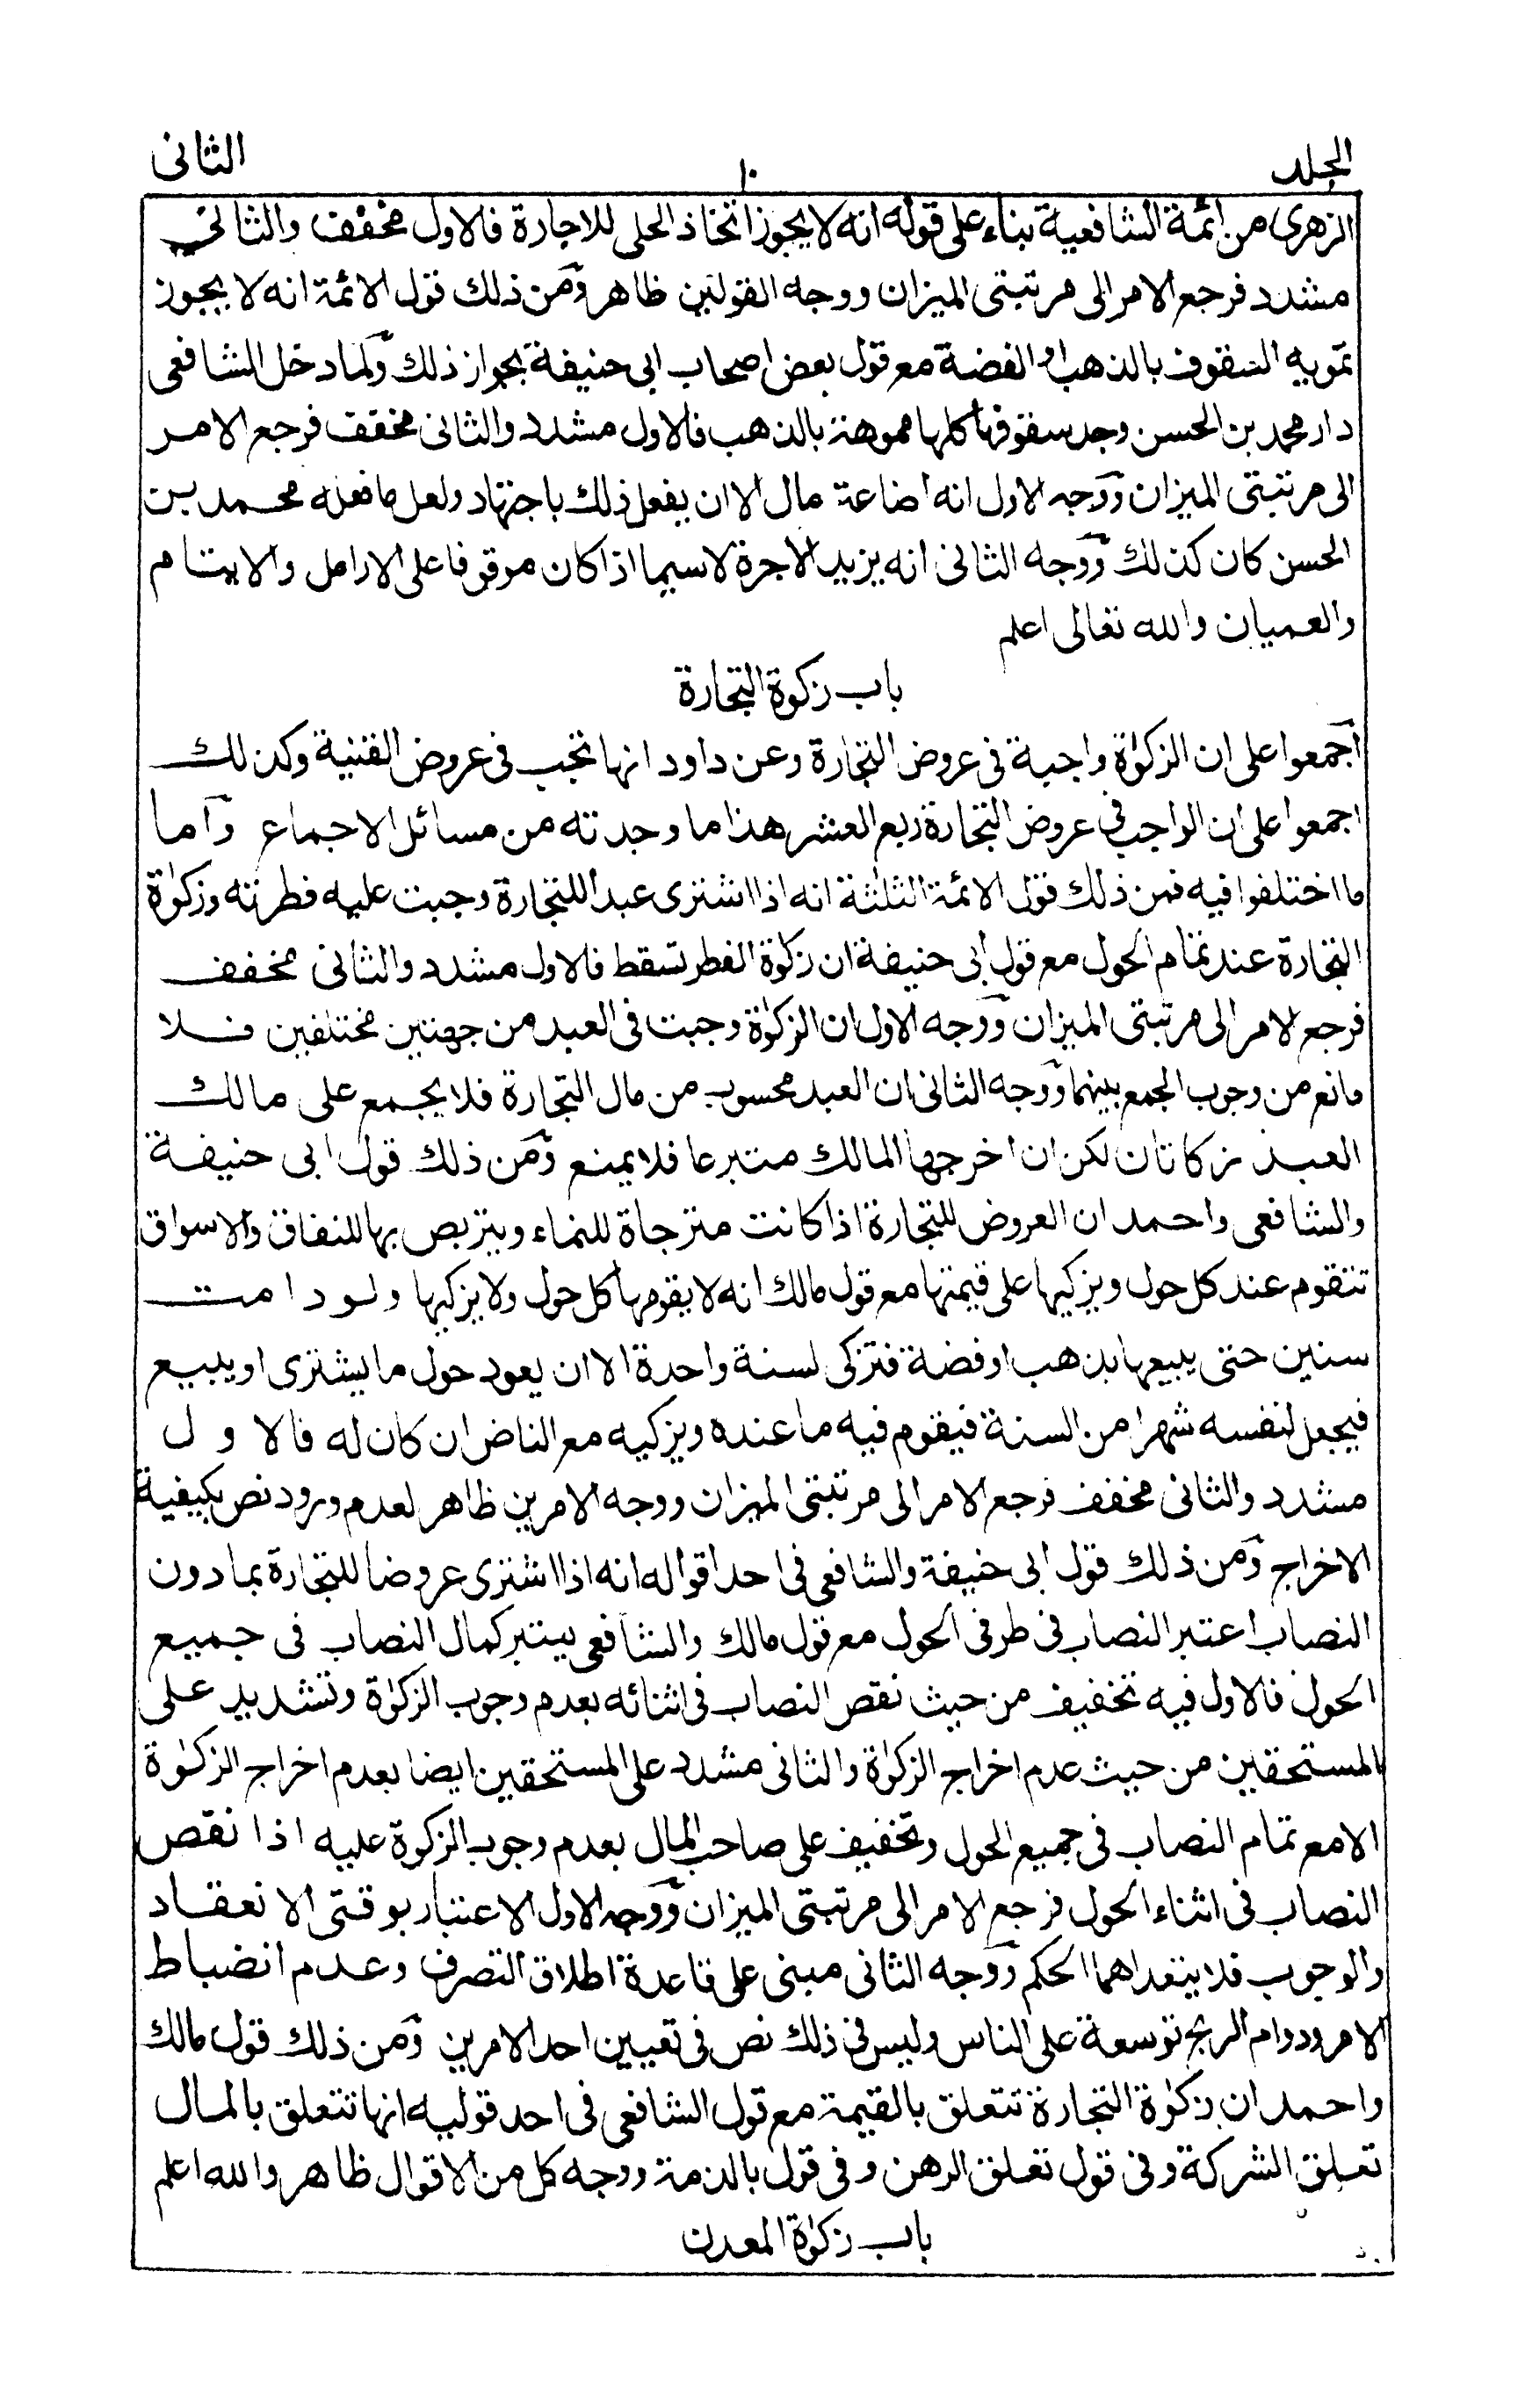 الجلد ١٠ الثانى
الزهرى من أئمة الشافعية بناء على قوله انه لا يجوز اتخاذ الحلى للاجارة فالاول مخفف والثانى
مشدد فرجع الامر الى مرتبتى الميزان ووجه القولين ظاهر ومن ذلك قول الائمة انه لا يجوز
تمويه السقوف بالذهب او الفضة مع قول بعض اصحاب ابى حنيفة بجواز ذلك ولما دخل الشافعى
دار محمد بن الحسن وجد سقوفها كلها مموهة بالذهب فالاول مشدد والثانى مخفف فرجع الامر
الى مرتبتى الميزان ووجه الاول انه اضاعة مال الا ان يفعل ذلك باجتهاد ولعل ما فعله محمد بن
الحسن كان كذلك ووجه الثانى انه يزيد الاجرة لا سيما اذا كان موقوفا على الارامل والايتام
والعميان والله تعالى اعلم
باب زكوة التجارة
اجمعوا على ان الزكوٰة واجبة فى عروض التجارة وعن داود انها تجب فى عروض القنية وكذلك
اجمعوا على ان الواجب فى عروض التجارة ربع العشر هذا ما وجدته من مسائل الاجماع واما
ما اختلفوا فيه فمن ذلك قول الائمة الثلثة انه اذا اشترى عبدا للتجارة وجبت عليه فطرته وزكوٰة
التجارة عند تمام الحول مع قول ابى حنيفة ان زكوٰة الفطر تسقط فالاول مشدد والثانى مخفف
فرجع الامر الى مرتبتى الميزان ووجه الاول ان الزكوٰة وجبت فى العبد من جهتين مختلفين فلا
مانع من وجوب الجمع بينهما ووجه الثانى ان العبد محسوب من مال التجارة فلا يجمع على مالك
العبد زكاتان لكن ان اخرجها المالك متبرعا فلا يمنع ومن ذلك قول ابى حنيفة
والشافعى واحمد ان العروض للتجارة اذا كانت مترجاة للنماء ويتربص بها للنفاق والاسواق
تتقوم عند كل حول ويزكيها على قيمتها مع قول مالك انه لا يقومها كل حول ولا يزكيها ولو دامت
سنين حتى يبيعها بذهب او فضة فتزكى لسنة واحدة الا ان يعود حول ما يشترى او يبيع
فيجعل لنفسه شهرا من السنة فيقوم فيه ما عنده ويزكيه مع الناض ان كان له فالاول
مشدد والثانى مخفف فرجع الامر الى مرتبتى الميزان ووجه الامرين ظاهر لعدم ورود نص بكيفية
الاخراج ومن ذلك قول ابى حنيفة والشافعى فى احد اقواله انه اذا اشترى عروضا للتجارة بما دون
النصاب اعتبر النصاب فى طرفى الحول مع قول مالك والشافعى يعتبر كمال النصاب فى جميع
الحول فالاول فيه تخفيف من حيث نقص النصاب فى اثنائه بعدم وجوب الزكوٰة وتشديد على
المستحقين من حيث عدم اخراج الزكوٰة والثانى مشدد على المستحقين ايضا بعدم اخراج الزكوٰة
الا مع تمام النصاب فى جميع الحول وتخفيف على صاحب المال بعدم وجوب الزكوة عليه اذا نقص
النصاب فى اثناء الحول فرجع الامر الى مرتبتى الميزان ووجه الاول الاعتبار بوقتى الانعقاد
والوجوب فلا يتعداهما الحكم ووجه الثانى مبنى على قاعدة اطلاق التصرف وعدم انضباط
الامر ودوام الربح توسعة على الناس وليس فى ذلك نص فى تعيين احد الامرين ومن ذلك قول مالك
واحمد ان زكوٰة التجارة تتعلق بالقيمة مع قول الشافعى فى احد قوليه انها تتعلق بالمال
تعلق الشركة وفى قول تعلق الرهن وفى قول بالذمة ووجه كل من الاقوال ظاهر والله اعلم
باب زكوٰة المعدن